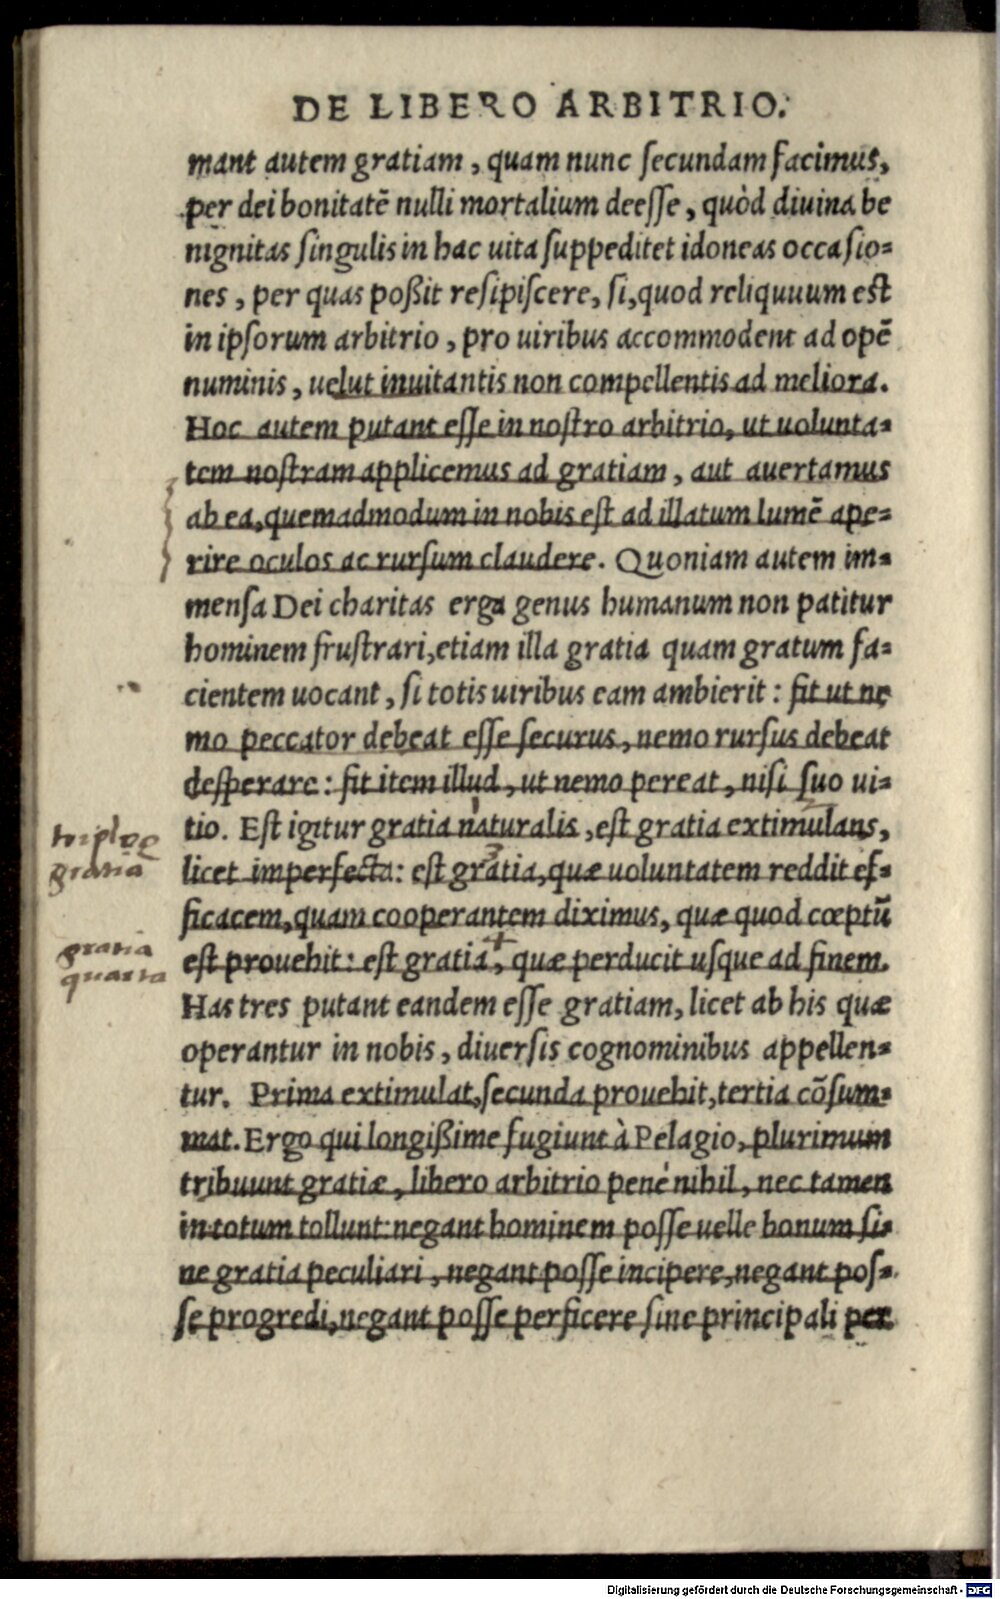 DE LIBERO ARBITRIO.
mant autem gratiam, quam nunc secundam facimus,
per dei bonitatē nulli mortalium deesse, quòd diuina be
nignitas singulis in hac uita suppeditet idoneas occasio=
nes, per quas poßit resipiscere, si, quod reliquuum est
in ipsorum arbitrio, pro uiribus accommodent ad opē
numinis, uelut inuitantis non compellentis ad meliora.
Hoc autem putant esse in nostro arbitrio, ut uolunta=
tem nostram applicemus ad gratiam, aut auertamus
ab ea, quemadmodum in nobis est ad illatum lumē ape=
rire oculos ac rursum claudere. Quoniam autem im=
mensa Dei charitas erga genus humanum non patitur
hominem frustrari, etiam illa gratia quam gratum fa=
cientem uocant, si totis uiribus eam ambierit: fit ut ne
mo peccator debeat esse securus, nemo rursus debeat
desperare: fit item illud, ut nemo pereat, nisi suo ui=
tio. Est igitur gratia naturalis, est gratia extimulans,
triplex
gratia
licet imperfecta: est gratia, quæ uoluntatem reddit ef=
ficacem, quam cooperantem diximus, quæ quod cœptū
gratia
quarta
est prouehit: est gratia, quæ perducit usque ad finem.
Has tres putant eandem esse gratiam, licet ab his quæ
operantur in nobis, diuersis cognominibus appellen=
tur. Prima extimulat, secunda prouehit, tertia cōsum=
mat. Ergo qui longißime fugiunt à Pelagio, plurimum
tribuunt gratiæ, libero arbitrio penè nihil, nec tamen
in totum tollunt: negant hominem posse uelle bonum si=
ne gratia peculiari, negant posse incipere, negant pos=
se progredi, negant posse perficere sine principali per
Digitalisierung gefördert durch die Deutsche Forschungsgemeinschaft - DFG